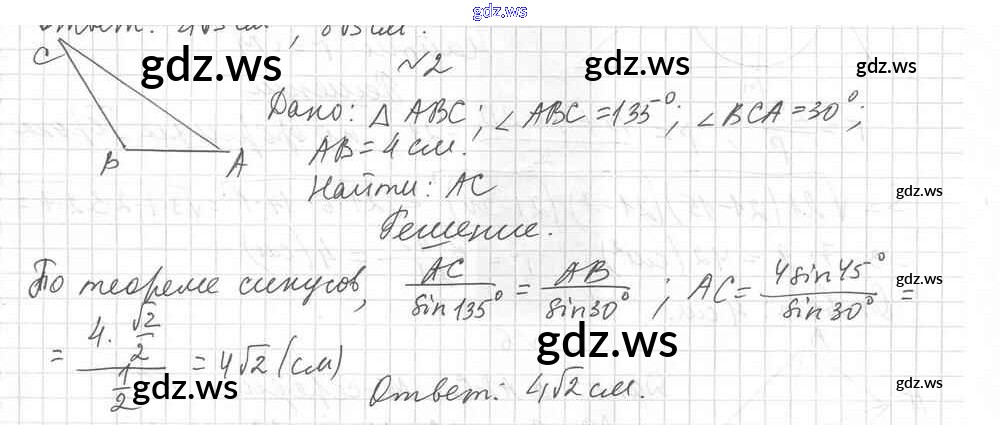 gdz.ws
Ответ: 4√3 см, 8√3 см.
gdz.ws
gdz.ws
gdz.ws
C
№2
Дано: △ ABC; ∠ABC = 135°; ∠BCA = 30°;
B A
AB = 4 см.
Найти: AC
gdz.ws
Решение.
По теореме синусов, AC/sin135° = AB/sin30°; AC = 4sin45°/sin30° =
gdz.ws
gdz.ws
= (4·√2/2)/(1/2) = 4√2 (см)
gdz.ws
gdz.ws
Ответ: 4√2 см.